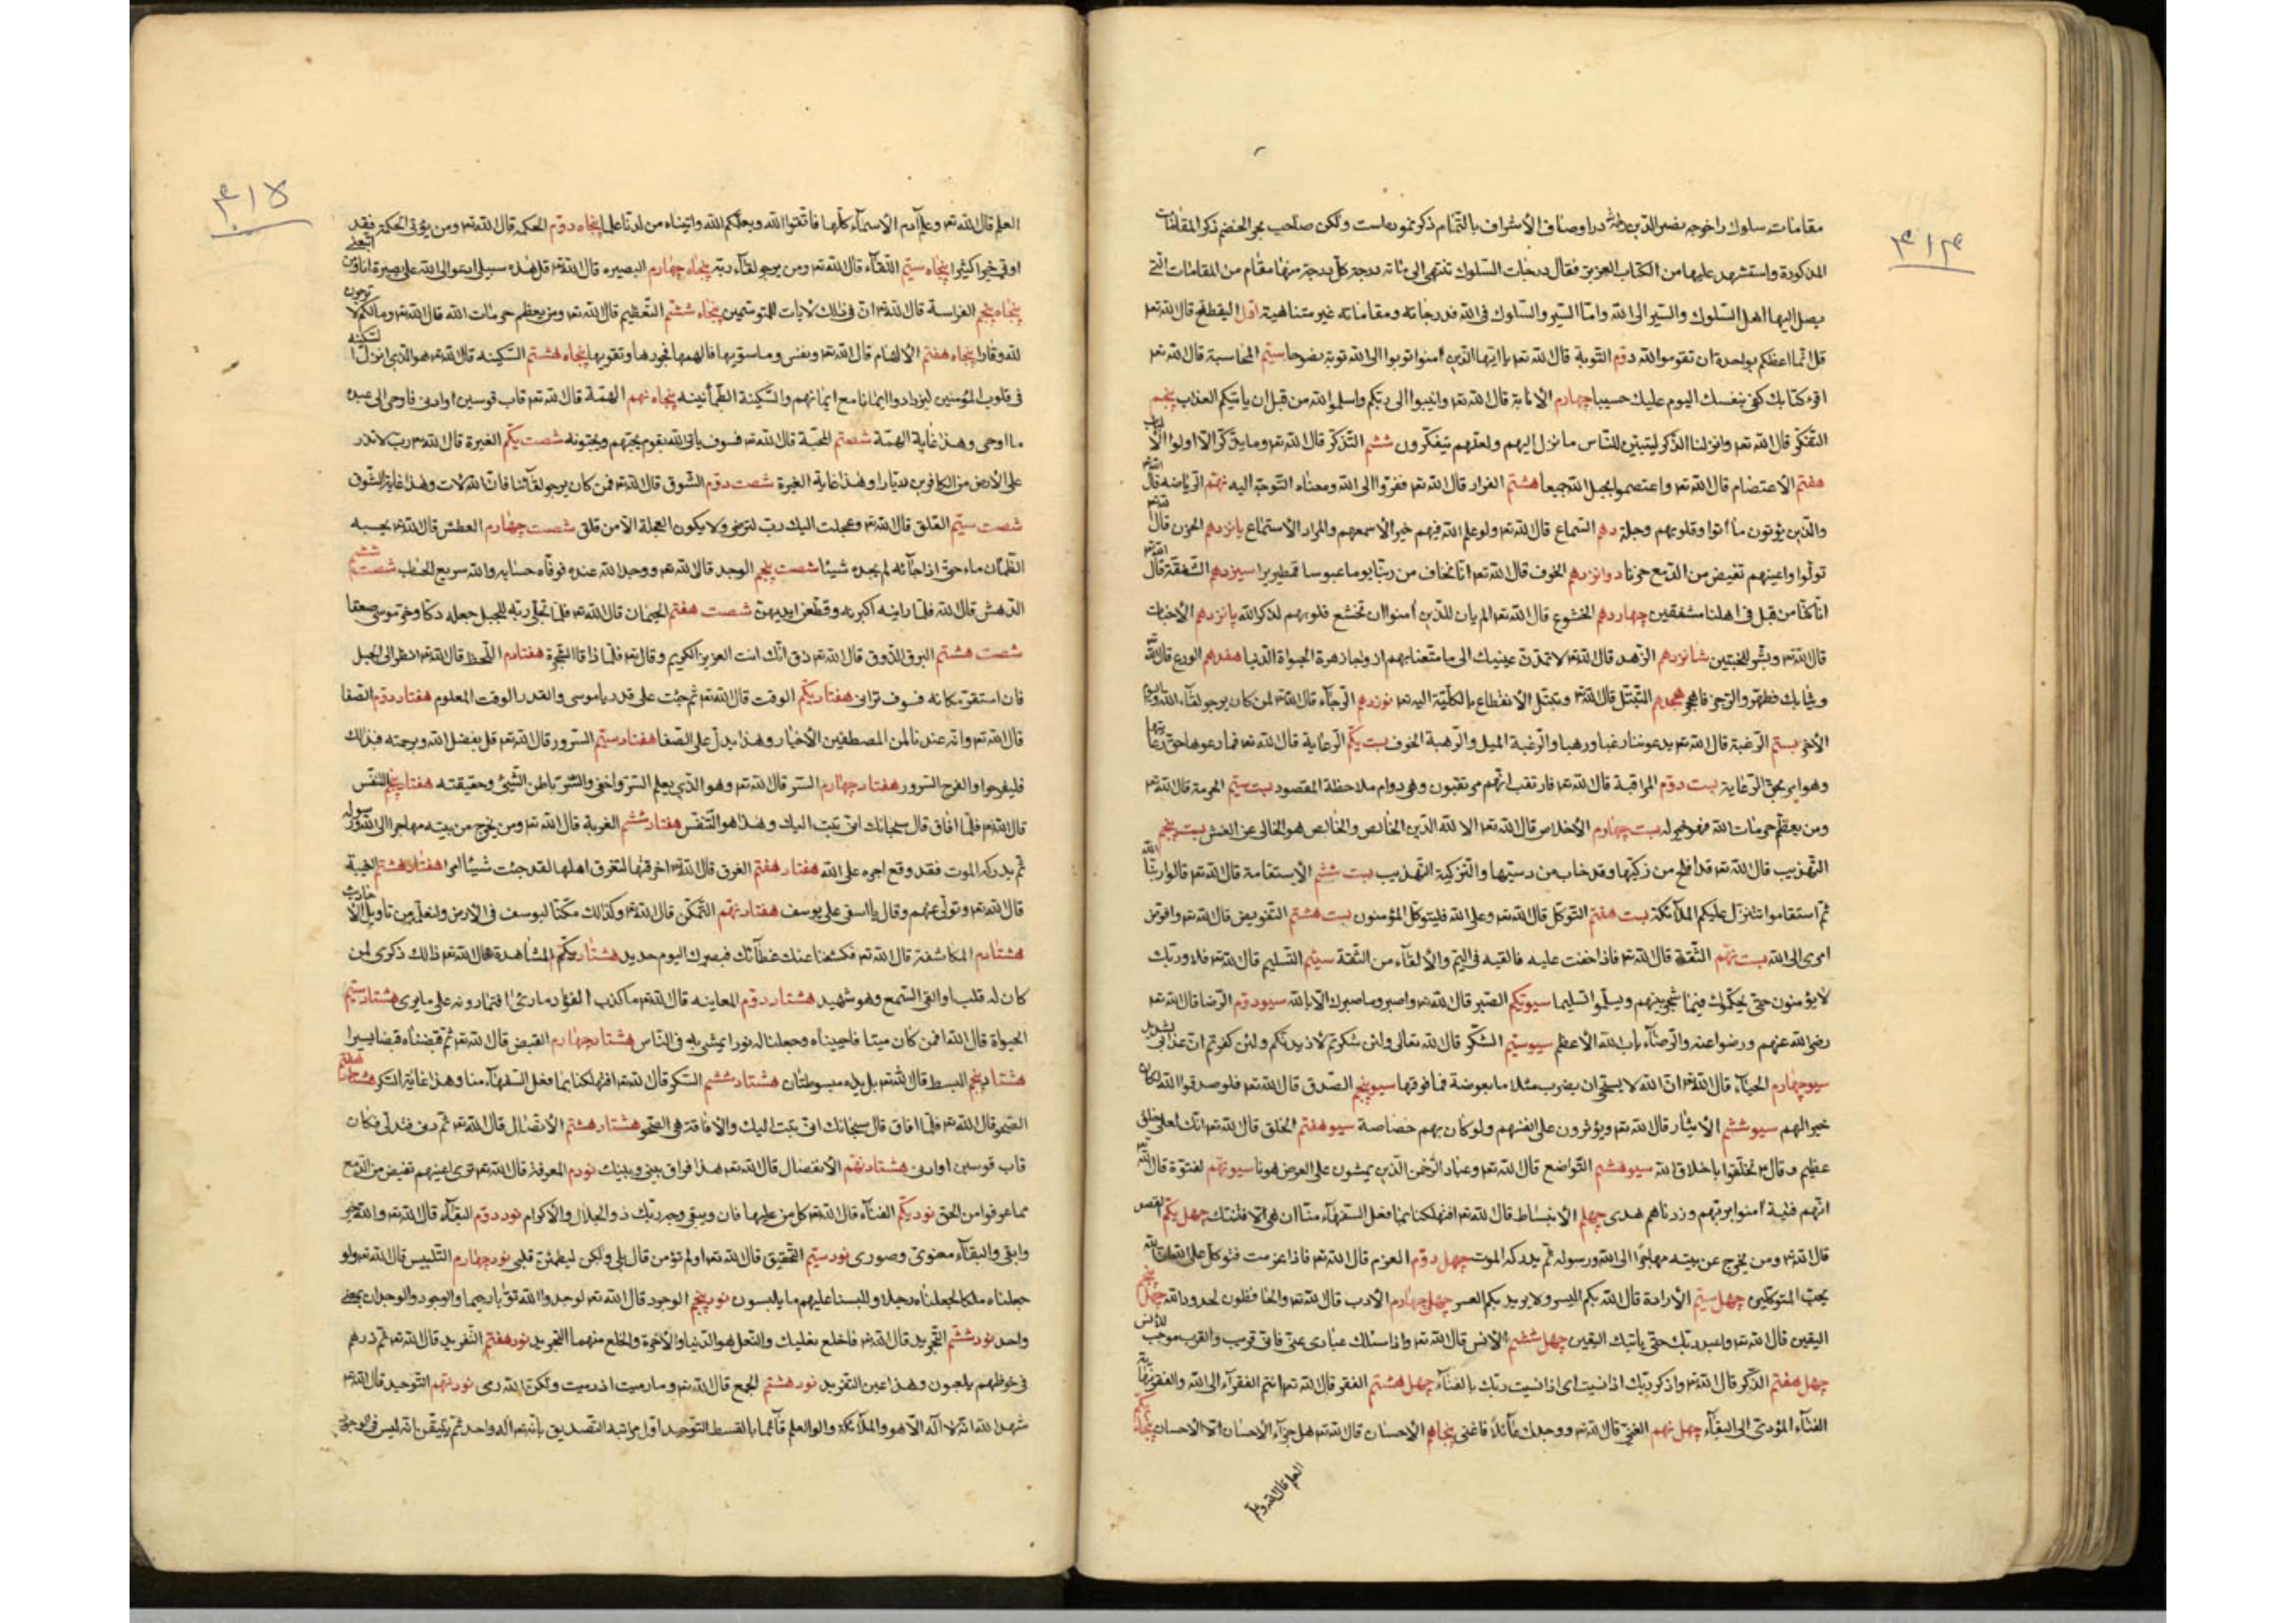 ۴۱۴
مقامات سلوك را خوجه نصير الدين در اوصاف الأشراف بالتمام ذكر نموده است ولكن صاحب بحر الخضم ذكر المقامات
المذكورة واستشهد عليها من الكتاب العزيز فقال درجات السلوك تنتهى الى مائة درجة كل درجة منها مقام من المقامات التى
يصل اليها اهل السلوك والسير الى الله واما السير والسلوك فى الله فدرجاته ومقاماته غير متناهية اول اليقظة قال الله تعر
قل انما اعظكم بواحدة ان تقوموا لله دوم التوبة قال الله تعر يا ايها الذين امنوا توبوا الى الله توبة نصوحا سيم المحاسبة قال الله تعر
اقرء كتابك كفى بنفسك اليوم عليك حسيبا چهارم الأنابة قال الله تعر وانيبوا الى ربكم واسلموا لله من قبل ان يأتيكم العذاب پنجم
التفكر قال الله تعر وانزلنا الذكر ليتبين للناس ما نزل اليهم ولعلهم يتفكرون ششم التذكر قال الله تعر وما يذكر الا اولوا الألباب
هفتم الأعتصام قال الله تعر واعتصموا بحبل الله جميعا هشتم الفرار قال الله تعر ففروا الى الله ومعناه التوجه اليه نهم الرياضة قال الله تعر
والذين يؤتون ما أتوا وقلوبهم وجلة دهم السماع قال الله تعر ولو علم الله فيهم خيرا لأسمعهم والمراد الأستماع يانزدهم الحزن قال الله تعر
تولوا واعينهم تفيض من الدمع حزنا دوانزدهم الخوف قال الله تعر انا نخاف من ربنا يوما عبوسا قمطريرا سيزدهم الشفقة قال الله تعر
انا كنا من قبل فى اهلنا مشفقين چهاردهم الخشوع قال الله تعر الم يأن للذين أمنوا ان تخشع قلوبهم لذكر الله پانزدهم الأخبات
قال الله تعر وبشر المخبتين شانزدهم الزهد قال الله تعر لا تمدن عينيك الى ما متعنا بهم ازواجا زهرة الحيوة الدنيا هفدهم الورع قال الله تعر
وثيابك فطهر والرجز فاهجر هجدهم التبتل قال الله تعر وتبتل الأنقطاع بالكلية اليه تعر نوزدهم الرجاء قال الله تعر لمن كان يرجو لقاء الله واليوم
الأخر بستم الرغبة قال الله تعر يدعوننا رغبا ورهبا والرغبة الميل والرهبة الخوف بست يكم الرعاية قال الله تعر فما رعوها حق رعايتها
وهو امر بحق الرعاية بست دوم المراقبة قال الله تعر فارتقب انهم مرتقبون وهى دوام ملاحظة المقصود بست سيم الحرمة قال الله تعر
ومن يعظم حرمات الله فهو خير له بست چهارم الأخلاص قال الله تعر الا لله الدين الخالص والخالص هو الخالى عن الغش بست پنجم
التهذيب قال الله تعر قد افلح من زكيها وقد خاب من دسيها والتزكية التهذيب بست ششم الأستقامة قال الله تعر قالوا ربنا الله
ثم استقاموا تتنزل عليكم الملائكة بست هفتم التوكل قال الله تعر وعلى الله فليتوكل المؤمنون بست هشتم التفويض قال الله تعر وافوض
امرى الى الله بست نهم الثقة قال الله تعر فاذا خفت عليه فالقيه فى اليم والألقاء من الثقة سيم التسليم قال الله تعر فلا وربك
لا يؤمنون حتى يحكموك فيما شجر بينهم ويسلموا تسليما سيويكم الصبر قال الله تعر واصبر وما صبرك الا بالله سيودوم الرضا قال الله تعر
رضى الله عنهم ورضوا عنه والرضاء باب الله الأعظم سيوسيم الشكر قال الله تعالى ولئن شكرتم لازيدنكم ولئن كفرتم ان عذابى لشديد
سيوچهارم الحياء قال الله تعر ان الله لا يستحى ان يضرب مثلا ما بعوضة فما فوقها سيوپنجم الصدق قال الله تعر فلو صدقوا الله لكان
خيرا لهم سيوششم الأيثار قال الله تعر ويؤثرون على انفسهم ولو كان بهم خصاصة سيوهفتم الخلق قال الله تعر انك لعلى خلق
عظيم وقال تخلقوا باخلاق الله سيوهشتم التواضع قال الله تعر وعباد الرحمن الذين يمشون على الارض هونا سيونهم لفتوة قال الله تعر
انهم فتية أمنوا بربهم وزدناهم هدى چهلم الأنبساط قال الله تعر افتهلكنا بما فعل السفهاء منا ان هى الا فتنتك چهل يكم القصد
قال الله تعر ومن يخرج عن بيته مهاجرا الى الله ورسوله ثم يدركه الموت چهل دوم العزم قال الله تعر فاذا عزمت فتوكل على الله ان الله
يحب المتوكلين چهل سيم الأرادة قال الله بكم اليسر ولا يريد بكم العسر چهل چهارم الأدب قال الله تعر والحافظون لحدود الله چهل پنجم
اليقين قال الله تعر واعبد ربك حتى يأتيك اليقين چهل ششم الأنس قال الله تعر واذا سئلك عبادى عنى فانى قريب والقرب موجب للأنس
چهل هفتم الذكر قال الله تعر واذكر ربك اذا نسيت اى اذا نسيت ربك بالفناء چهل هشتم الفقر قال الله تعر انتم الفقراء الى الله والفقر
الفناء المؤدى الى البقاء چهل نهم الغنى قال الله تعر ووجدك عائلا فاغنى پنجاهم الأحسان قال الله تعر هل جزاء الأحسان الا الاحسان پنجاه يكم
العلم قال الله تعر وعلم
۴۱۵
العلم قال الله تعر وعلم آدم الأسماء كلها فاتقوا الله ويعلمكم الله واتيناه من لدنا علما پنجاه دوم الحكمة قال الله تعر ومن يؤتى الحكمة فقد
اوتى خيرا كثيرا پنجاه سيم اللقاء قال الله تعر ومن يرجو لقاء ربه پنجاه چهارم البصيرة قال الله تعر قل هذه سبيلى ادعوا الى الله على بصيرة انا ومن اتبعنى
پنجاه پنجم الفراسة قال الله تعر ان فى ذلك لأيات للمتوسمين پنجاه ششم التعظيم قال الله تعر ومن يعظم حرمات الله قال الله تعر ومالكم لا ترجون
لله وقارا پنجاه هفتم الألهام قال الله تعر ونفس وما سويها فالهمها فجورها وتقويها پنجاه هشتم السكينة قال الله تعر هو الذى انزل السكينة
فى قلوب المؤمنين ليزدادوا ايمانا مع ايمانهم والسكينة الطمأنينه پنجاه نهم الهمة قال الله تعر قاب قوسين او ادنى فاوحى الى عبده
ما اوحى وهذا غاية الهمة شصتم المحبة قال الله تعر فسوف يأتى الله بقوم يحبهم ويحبونه شصت يكم الغيرة قال الله تعر رب لا تذر
على الأرض من الكافرين ديارا وهذا غاية الغيرة شصت دوم الشوق قال الله تعر فمن كان يرجو لقائنا فان الله لات وهذا غاية الشوق
شصت سيم القلق قال الله تعر وعجلت اليك رب لترضى ولا يكون العجلة الا من قلق شصت چهارم العطش قال الله تعر يحسبه
الظمآن ماء حتى اذا جائه لم يجده شيئا شصت پنجم الوجد قال الله تعر ووجد الله عنده فوفاه حسابه والله سريع الحساب شصت ششم
الدهش قال الله فلما راينه اكبرنه وقطعن ايديهن شصت هفتم الهيمان قال الله تعر فلما تجلى ربه للجبل جعله دكا وخر موسى صعقا
شصت هشتم البرق الذوق قال الله تعر ذق انك انت العزيز الكريم وقال تعر فلما ذاقا الشجرة هفتادم اللحظ قال الله تعر انظر الى الجبل
فان استقر مكانه فسوف ترانى هفتاد يكم الوقت قال الله تعر ثم جئت على قدر يا موسى والقدر الوقت المعلوم هفتاد دوم الصفا
قال الله تعر وانهم عندنا لمن المصطفين الأخيار وهذا يدل على الصفا هفتاد سيم السرور قال الله تعر قل بفضل الله وبرحمته فبذلك
فليفرحوا والفرح السرور هفتاد چهارم السر قال الله تعر وهو الذى يعلم السر واخفى والسر باطن الشئ وحقيقته هفتاد پنجم النفس
قال الله تعر فلما افاق قال سبحانك انى تبت اليك وهذا هو التنفس هفتاد ششم الغربة قال الله تعر ومن يخرج من بيته مهاجرا الى الله ورسوله
ثم يدركه الموت فقد وقع اجره على الله هفتاد هفتم الغرق قال الله تعر اخرقتها لتغرق اهلها لقد جئت شيئا امرا هفتاد هشتم الغيبة
قال الله تعر وتولى عنهم وقال يا اسفى على يوسف هفتاد نهم التمكن قال الله تعر وكذلك مكنا ليوسف فى الارض ولنعلمه من تاويل الأحاديث
هشتادم المكاشفة قال الله تعر فكشفنا عنك غطائك فبصرك اليوم حديد هشتاد يكم المشاهدة قال الله تعر ذلك ذكرى لمن
كان له قلب او القى السمع وهو شهيد هشتاد دوم المعاينه قال الله تعر ما كذب الفؤاد ما رءى افتمارونه على ما يرى هشتاد سيم
الحيوة قال الله افمن كان ميتا فاحييناه وجعلنا له نورا يمشى به فى الناس هشتاد چهارم القبض قال الله تعر ثم قبضناه قبضا يسيرا
هشتاد پنجم البسط قال الله تعر بل يداه مبسوطتان هشتاد ششم السكر قال الله تعر افتهلكنا بما فعل السفهاء منا وهذا غاية السكر هشتاد هفتم
الصحو قال الله تعر فلما افاق قال سبحانك انى تبت اليك والافاقة هى الصحو هشتاد هشتم الأتصال قال الله تعر ثم دنى فتدلى فكان
قاب قوسين او ادنى هشتاد نهم الأنفصال قال الله تعر هذا فراق بينى وبينك نودم المعرفة قال الله تعر ترى اعينهم تفيض من الدمع
مما عرفوا من الحق نود يكم الفناء قال الله تعر كل من عليها فان ويبقى وجه ربك ذو الجلال والأكرام نود دوم البقاء قال الله تعر والله خير
وابقى والبقاء معنوى وصورى نود سيم التحقيق قال الله تعر اولم تؤمن قال بلى ولكن ليطمئن قلبى نود چهارم التلبيس قال الله تعر ولو
جعلناه ملكا لجعلناه رجلا وللبسنا عليهم ما يلبسون نود پنجم الوجود قال الله تعر لوجدوا الله توابا رحيما والوجود والوجدان بمعنى
واحد نود ششم التجريد قال الله تعر فاخلع نعليك والنعل هو الدنيا والأخرة والخلع منهما التجريد نود هفتم التفريد قال الله تعر ثم ذرهم
فى خوضهم يلعبون وهذا عين التفريد نود هشتم الجمع قال الله تعر وما رميت اذ رميت ولكن الله رمى نود نهم التوحيد قال الله تعر
شهد الله انه لا اله الا هو والملائكة واولوا العلم قائما بالقسط التوحيد اول مراتبه التصديق بانه تعر اله واحد ثم يتيقن انه ليس فى الوجود